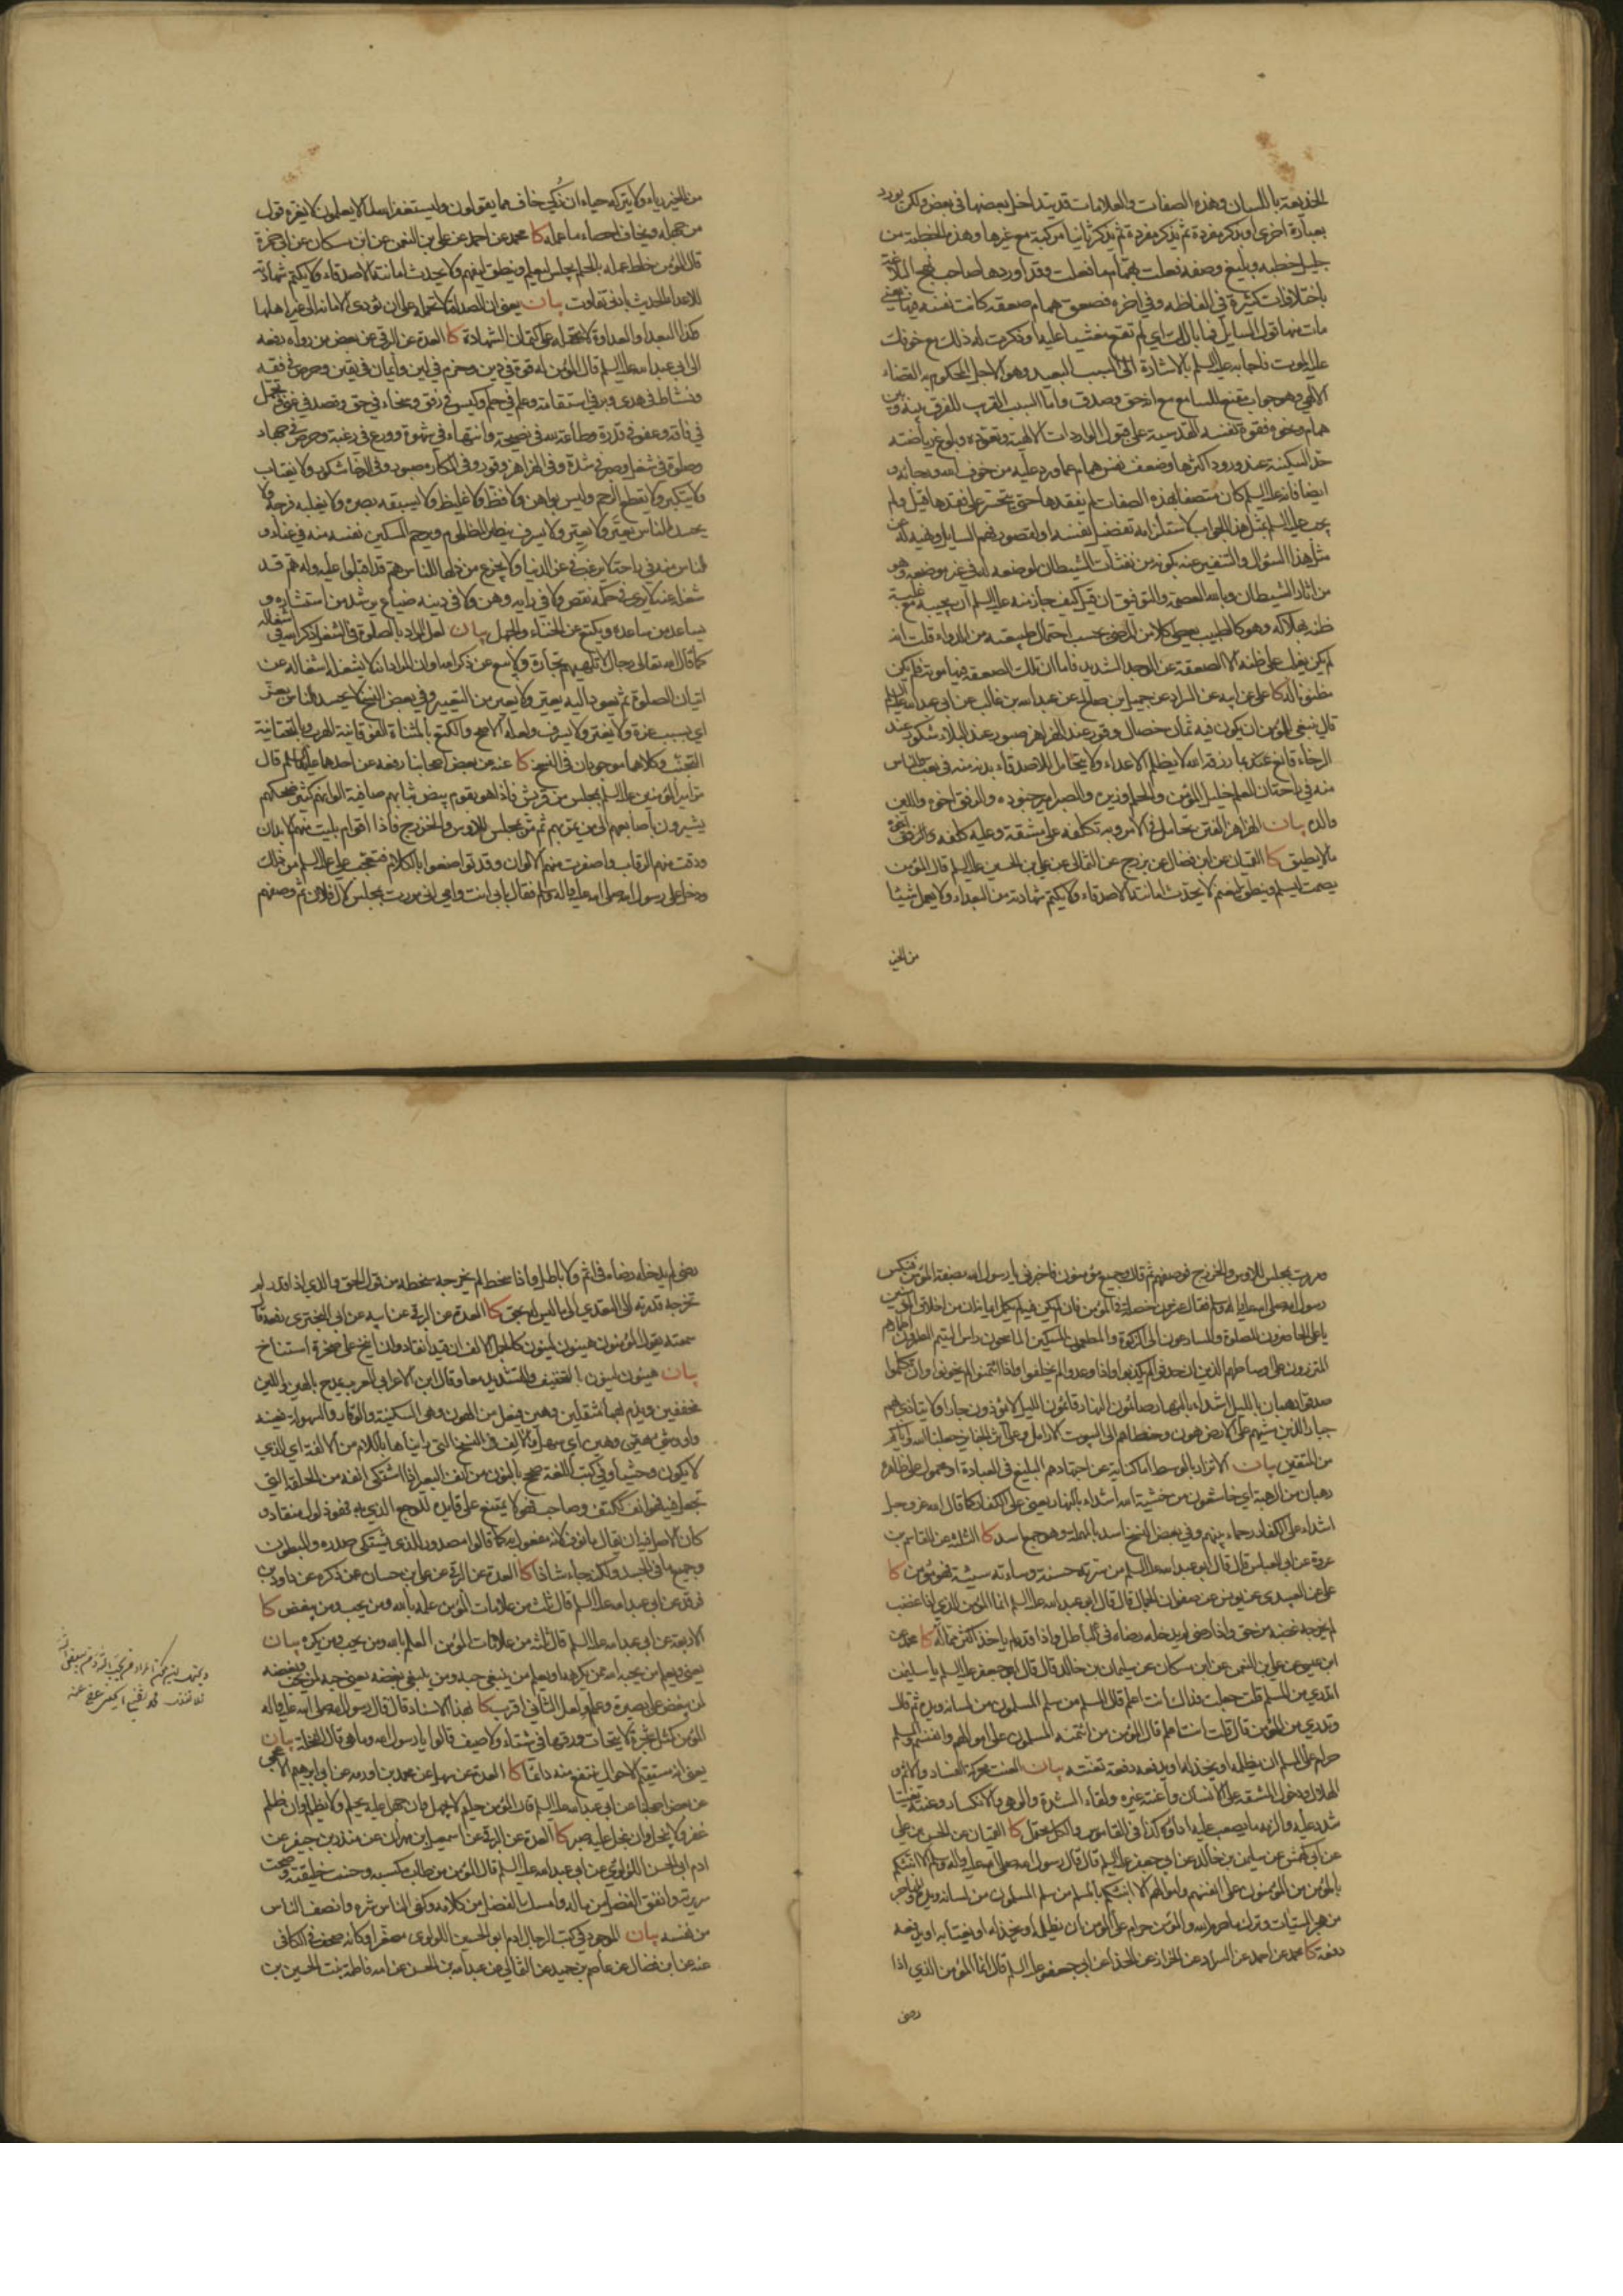 الخديعة باللسان وهذه الصفات والعلامات قد يتداخل بعضها في بعض ولكن يورد
بعبارة اخرى او يذكر مفردة ثم يذكر ثانيا مركبة مع غيرها وهذه الخطبة من
جليل خطبه وبليغ وصفه فعلت بهمام ما فعلت وقد اوردها صاحب نهج البلاغة
باختلافات كثيرة في الفاظه وفي اخره فصعق همام صعقة كانت نفسه فيها يعني
مات منها قول السايل فما بالك اي لم تقع مغشيا عليك او ذكرت له ذلك مع خوفك
عليه الموت فاجابه عليه السلم بالاشارة الى السبب البعيد وهو الاجل المحكوم به القضاء
الالهي وهو جواب مقنع للسامع مع انه حق وصدق واما السبب القريب للفرق بينه وبين
همام ونحوه فقوة نفسه القدسية على قبول الواردات الالهية وتعوده بها وبلوغ رياضته
حد السكينة عند ورود اكثرها وضعف نفس همام عما ورد عليه من خوف الله ورجائه و
ايضا فانه عليه السلم كان متصفا بهذه الصفات لم يفقدها حتى يتحسر على فقدها قيل ولم
يجب عليه السلم بمثل هذا الجواب لاستلزامه تفضيل نفسه او لقصور فهم السايل ونهيه له عن
مثل هذا السؤال والتنفير عنه بكونه من نفثات الشيطان لوضعه له في غير موضعه وهو
من اثار الشيطان وبالله العصمة والتوفيق ان قيل كيف جاز منه عليه السلم ان يجيبه مع غلبة
ظنه بهلاكه وهو كالطبيب يعطي كلا من المرضى بحسب احتمال طبيعته من الدواء قلت انه
لم يكن يغلب على ظنه الا الصعقة عن الوجد الشديد فاما ان تلك الصعقة فيها موته فلم يكن
مظنونا له كا علي عن ابيه عن السراد عن جميل بن صالح عن عبد الله بن غالب عن ابي عبد الله عليه السلم
قال ينبغي للمؤمن ان يكون فيه ثمان خصال وقور عند الهزاهز صبور عند البلاء شكور عند
الرخاء قانع بما رزقه الله لا يظلم الاعداء ولا يتحامل للاصدقاء بدنه منه في تعب والناس
منه في راحة ان العلم خليل المؤمن والحلم وزيره والصبر امير جنوده والرفق اخوه واللين
والده بيان الهزاهز الفتن تحامل في الامر وبه تكلفه على مشقة وعليه كلفه
ما لا يطيق كا القميان عن ابن فضال عن بزرج عن الثمالي عن علي بن الحسين عليه السلم قال المؤمن
يصمت ليسلم وينطق ليغنم لا يحدث امانته الاصدقاء ولا يكتم شهادته من البعداء ولا يعمل شيئا
من الخير
من الخير رياء ولا يتركه حياء ان زكي خاف مما يقولون وليستغفر الله لما لا يعلمون لا يغره قول
من جهله ويخاف احصاء ما عمله كا محمد عن احمد عن علي بن النعمن عن ابن مسكان عن ابي حمزة
قال المؤمن خلط عمله بالحلم يجلس ليعلم وينطق ليفهم ولا يحدث امانته الاصدقاء ولا يكتم شهادته
للاعداء الحديث بادنى تفاوت بيان يعني ان الصداقة لا تحمله على ان يؤدي الامانة الى غير اهلها
كذا البعد او العداوة لا يحمله على كتمان الشهادة كا العدة عن البرقي عن بعض من رواه رفعه
الى ابي عبد الله عليه السلم قال المؤمن له قوة في دين وحزم في لين وايمان في يقين وحرص في فقه
ونشاط في هدى وبر في استقامة وعلم في حلم وكيس في رفق وسخاء في حق وقصد في غنى وتجمل
في فاقة وعفو في قدرة وطاعة لله في نصيحة وانتهاء في شهوة وورع في رغبة وحرص في جهاد
وصلوة في شغل وصبر في شدة وفي الهزاهز وقور وفي المكاره صبور وفي الرخاء شكور ولا يغتاب
ولا يتكبر ولا يقطع الرحم وليس بواهن ولا فظ ولا غليظ ولا يسبقه بصره ولا يغلبه فرجه ولا
يحسد الناس يعير ولا يعير ولا يسرف ينصر المظلوم ويرحم المسكين نفسه منه في عناء و
الناس منه في راحة لا يرغب في عز الدنيا ولا يجزع من ذلها للناس هم قد اقبلوا عليه وله هم قد
شغله عنه لا يرى في حكمه نقص ولا في رايه وهن ولا في دينه ضياع يرشد من استشاره و
يساعد من ساعده ويكيع عن الخناء والجهل بيان لعل المراد بالصلوة في الشغل ذكر الله في اشغاله
كما قال الله تعالى رجال لا تلهيهم تجارة ولا بيع عن ذكر الله او ان المراد انه لا يشغله اشغاله عن
اتيان الصلوة ثم يعود اليه يعير ولا يعير من التعيير وفي بعض النسخ لا يحسد الناس بعز
اي بسبب عزة ولا يقتر ولا يسرف ولعله الاصح
كا عنه عن بعض اصحابنا رفعه عن احدهما عليهما السلم قال
مر امير المؤمنين عليه السلم بمجلس من قريش فاذا هو بقوم بيض ثيابهم صافية الوانهم كثير ضحكهم
يشيرون باصابعهم الى من يمر بهم ثم مر بمجلس للاوس والخزرج فاذا اقوام بليت منهم الابدان
ودقت منهم الرقاب واصفرت منهم الالوان وقد تواضعوا بالكلام فتعجب علي عليه السلم من ذلك
ودخل على رسول الله صلى الله عليه واله وسلم فقال بابي انت وامي اني مررت بمجلس لال فلان ثم وصفهم
ومررت بمجلس للاوس والخزرج فوصفهم ثم قال وجميع مؤمنون فاخبرني يا رسول الله بصفة المؤمن فنكس
رسول الله صلى الله عليه واله وسلم ثم رفع راسه فقال عشرون خصلة في المؤمن فان لم يكن فيه لم يكمل ايمانه ان من اخلاق المؤمنين
يا علي الحاضرون الصلوة والمسارعون الى الزكوة والمطعمون المسكين الماسحون راس اليتيم المطهرون اطمارهم
المتزرون على اوساطهم الذين ان حدثوا لم يكذبوا واذا وعدوا لم يخلفوا واذا ائتمنوا لم يخونوا وان تكلموا
صدقوا رهبان بالليل اسد بالنهار صائمون النهار قائمون الليل لا يؤذون جارا ولا يتاذى بهم
جار الذين مشيهم على الارض هون وخطاهم الى بيوت الارامل وعلى اثر الجنايز جعلنا الله واياكم
من المتقين بيان الاتزار بالوسط اما كناية عن اجتهادهم البليغ في العبادة او محمول على ظاهره
رهبان من الرهبة اي خاشعون من خشية الله اشداء بالنهار يعني على الكفار كما قال الله عز وجل
اشداء على الكفار رحماء بينهم وفي بعض النسخ اسد بالمهملة وهو جمع اسد كا الثلاثة عن القاسم بن
عروة عن ابي العباس قال قال ابو عبد الله عليه السلم من سرته حسنة وساءته سيئة فهو مؤمن كا
علي عن العبيدي عن يونس عن صفوان الجمال قال قال ابو عبد الله عليه السلم انما المؤمن الذي اذا غضب
لم يخرجه غضبه من حق واذا رضي لم يدخله رضاه في الباطل واذا قدر لم ياخذ اكثر مما له كا محمد عن
ابن عيسى عن علي بن النعمن عن ابن مسكان عن سليمان بن خالد قال قال ابو جعفر عليه السلم يا سليمن
اتدري من المسلم قلت جعلت فداك انت اعلم قال المسلم من سلم المسلمون من لسانه ويده ثم قال
وتدري من المؤمن قال قلت انت اعلم قال المؤمن من ائتمنه المسلمون على اموالهم وانفسهم والمسلم
حرام على المسلم ان يظلمه او يخذله او يدفعه دفعة تعنته بيان العنت محركة الفساد والاثم و
الهلاك ودخول المشقة على الانسان واعنته غيره ولقاء الشدة والوهي والانكسار وعنته تعنيتا
شدد عليه والزمه ما يصعب عليه اداؤه كذا في القاموس والكل محتمل كا القميان عن الحسن بن علي
عن ابي كهمس عن سليمن بن خالد عن ابي جعفر عليه السلم قال قال رسول الله صلى الله عليه واله وسلم الا انبئكم
بالمؤمن من ائتمنه المؤمنون على انفسهم واموالهم الا انبئكم بالمسلم من سلم المسلمون من لسانه ويده والمهاجر
من هجر السيئات وترك ما حرم الله والمؤمن حرام على المؤمن ان يظلمه او يخذله او يغتابه او يدفعه
دفعة كا محمد عن احمد عن السراد عن الخراز عن الحذاء عن ابي جعفر عليه السلم قال انما المؤمن الذي اذا
رضي
رضي لم يدخله رضاه في اثم ولا باطل واذا سخط لم يخرجه سخطه من قول الحق والذي اذا قدر لم
تخرجه قدرته الى التعدي الى ما ليس له بحق كا العدة عن البرقي عن ابيه عن ابي البختري رفعه قال
سمعته يقول المؤمنون هينون لينون كالجمل الانف ان قيد انقاد وان انيخ على صخرة استناخ
بيان هينون لينون بالتخفيف والتشديد معا وقال ابن الاعرابي العرب يمدح بالهين واللين
مخففين ويذم بهما مثقلين وهين فيعل من الهون وهي السكينة والوقار والسهولة فعينه
واو وشيء هين وهين اي سهل والالف في النسخ التي رايناها باللام من الالفة اي الذي
لا يكون وحشيا وفي كتب اللغة صحح بالنون من انف البعير اذا اشتكى انفه من الحلقة التي
تجعل فيه فهو انف ككتف وصاحب فهو لا يمتنع على قايده للوجع الذي به فهو ذلول منقاد و
كان الاصل فيه ان يقال مانوف لانه مفعول به كما قالوا مصدور للذي يشتكي صدره والمبطون
وجميع ما في الجسد ولكن جاء شاذا كا العدة عن البرقي عن علي بن حسان عن ذكره عن داود بن
فرقد عن ابي عبد الله عليه السلم قال ثلث من علامات المؤمن علمه بالله ومن يحب ومن يبغض كا
الاربعة عن ابي عبد الله عليه السلم قال ثلثة من علامات المؤمن العلم بالله ومن يحب ومن يكره بيان
كا بهذا الاسناد قال قال رسول الله صلى الله عليه واله
المؤمن كمثل شجرة لا يتحات ورقها في شتاء ولا صيف قالوا يا رسول الله وما هي قال النخلة بيان
يعني انه مستقيم الاحوال ينتفع منه دائما كا العدة عن سهل عن محمد بن اورمه عن ابي ابرهيم الاعجمي
عن بعض اصحابنا عن ابي عبد الله عليه السلم قال المؤمن حليم لا يجهل وان جهل عليه يحلم ولا يظلم وان ظلم
غفر ولا يبخل وان بخل عليه صبر كا العدة عن البرقي عن اسمعيل بن مهران عن منذر بن جيفر عن
ادم ابي الحسين اللؤلؤي عن ابي عبد الله عليه السلم قال المؤمن من طاب مكسبه وحسنت خليقته وصحت
سريرته وانفق الفضل من ماله وامسك الفضل من كلامه وكفى الناس شره وانصف الناس
من نفسه بيان الموجود في كتب الرجال ادم ابو الحسين اللؤلؤي مصغرا وكانه صحف في الكافي
عنه عن ابن فضال عن عاصم بن حميد عن الثمالي عن عبد الله بن الحسن عن امه فاطمة بنت الحسين بن